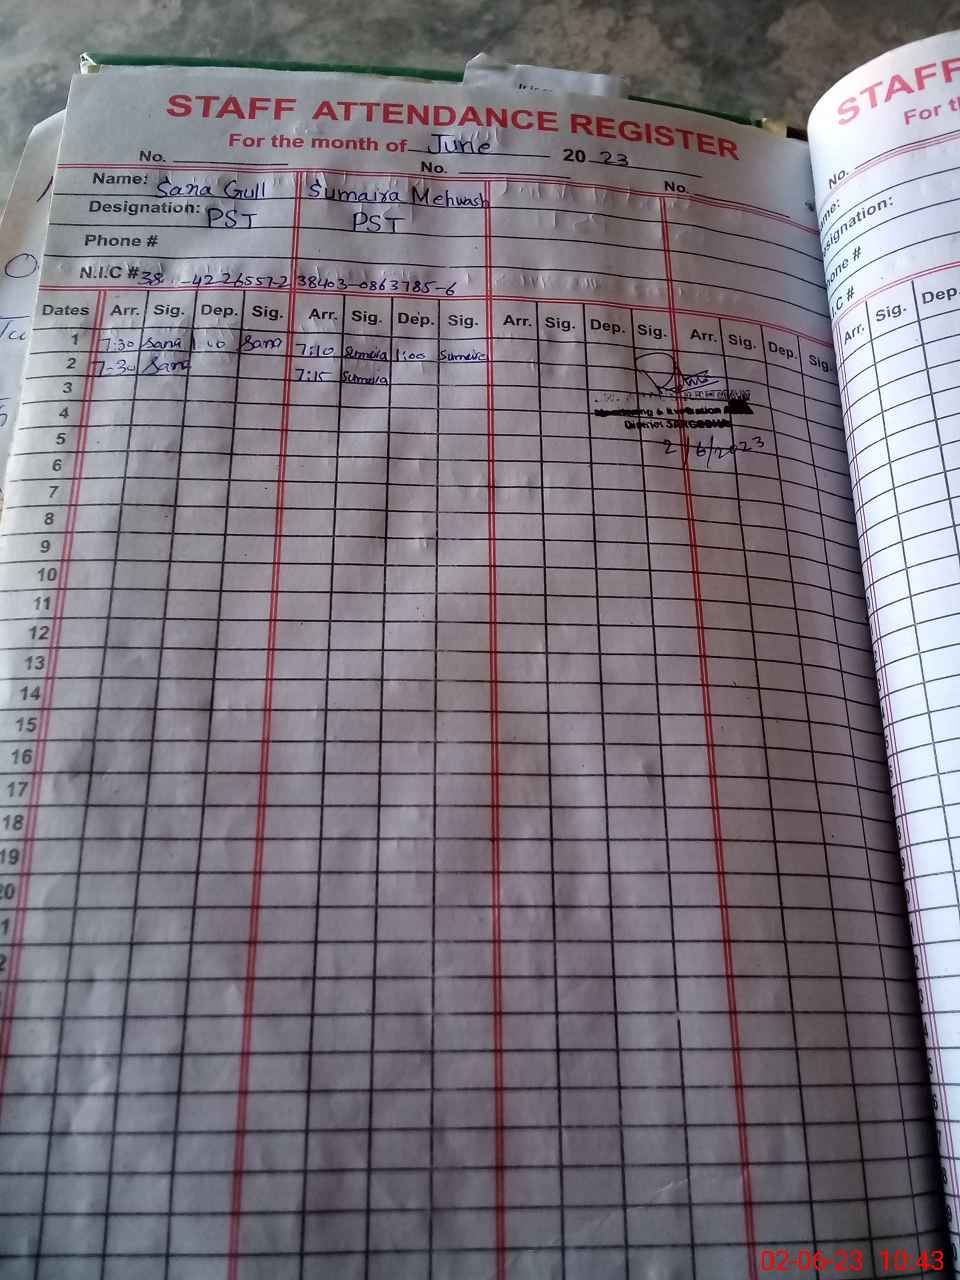 STAFF ATTENDANCE REGISTER
For the month of June 2023
No. No. No.
Name: Sana Gull Sumaira Mehwash
Designation: PST PST
Phone #
N.I.C # 38 -4226557-2 38403-0863785-6
Dates Arr. Sig. Dep. Sig. Arr. Sig. Dep. Sig. Arr. Sig. Dep. Sig. Arr. Sig. Dep. Sig.
1 7:30 Sana Sana 7:10 Sumaira 1:00 Sumaira
2 7-30 Sana 7:15 Sumaira
3
4
5
6
7
8
9
10
11
12
13
14
15
16
17
18
19
20
1
2
District SARGODHA
2/6/2023
STAFF
For th
No.
me:
signation:
one #
I.C #
Arr. Sig. Dep.
02-06-23 10:43